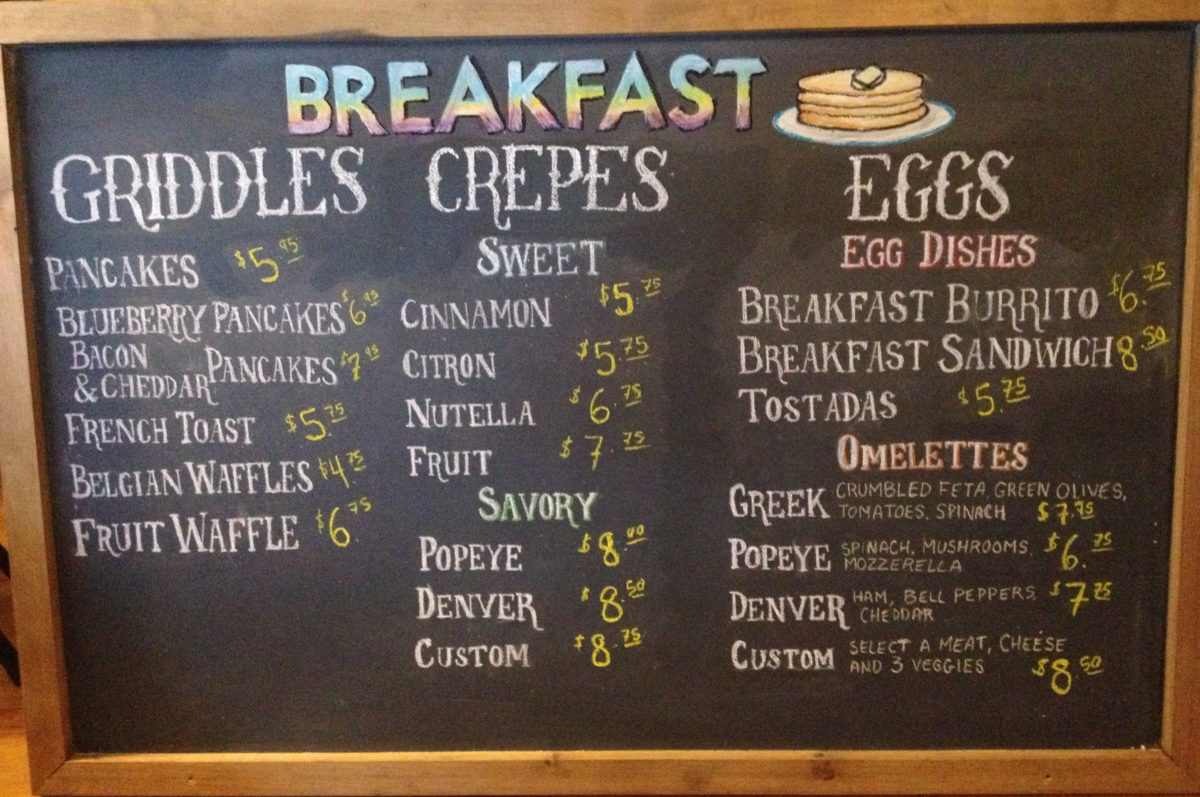 BREAKFAST
GRIDDLES
PANCAKES $5.95
BLUEBERRY PANCAKES $6.95
BACON
& CHEDDAR PANCAKES $7.95
FRENCH TOAST $5.75
BELGIAN WAFFLES $4.75
FRUIT WAFFLE $6.75
CREPES
SWEET
CINNAMON $5.75
CITRON $5.75
NUTELLA $6.75
FRUIT $7.75
SAVORY
POPEYE $8.00
DENVER $8.50
CUSTOM $8.75
EGGS
EGG DISHES
BREAKFAST BURRITO $6.75
BREAKFAST SANDWICH 8.50
TOSTADAS $5.75
OMELETTES
GREEK CRUMBLED FETA, GREEN OLIVES,
TOMATOES, SPINACH $7.75
POPEYE SPINACH, MUSHROOMS, $6.75
MOZZERELLA
DENVER HAM, BELL PEPPERS, $7.25
CHEDDAR
CUSTOM SELECT A MEAT, CHEESE
AND 3 VEGGIES $8.50